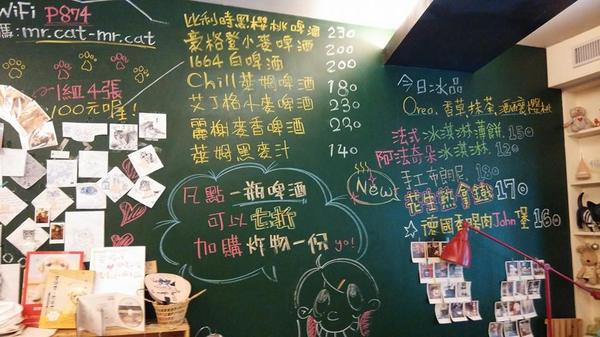 WiFi P874
碼:mr.cat-mr.cat
1組4張
100元喔!
比利時黑櫻桃啤酒 230
豪格登小麥啤酒 200
1664白啤酒 200
Chill蓝姆啤酒 180
艾丁格小麥啤酒 230
麗榭麥香啤酒 220
蓝姆黑麥汁 140
凡點一瓶啤酒
可以七折
加購炸物一份 yo!
今日冰品
Oreo.香蕉.抹茶.酒釀櫻桃
法式冰淇淋薄餅.150
阿法奇朵冰淇淋.120
New
手工布朗尼.120
花生熱拿鐵 170
☆德國香腸肉John堡 160